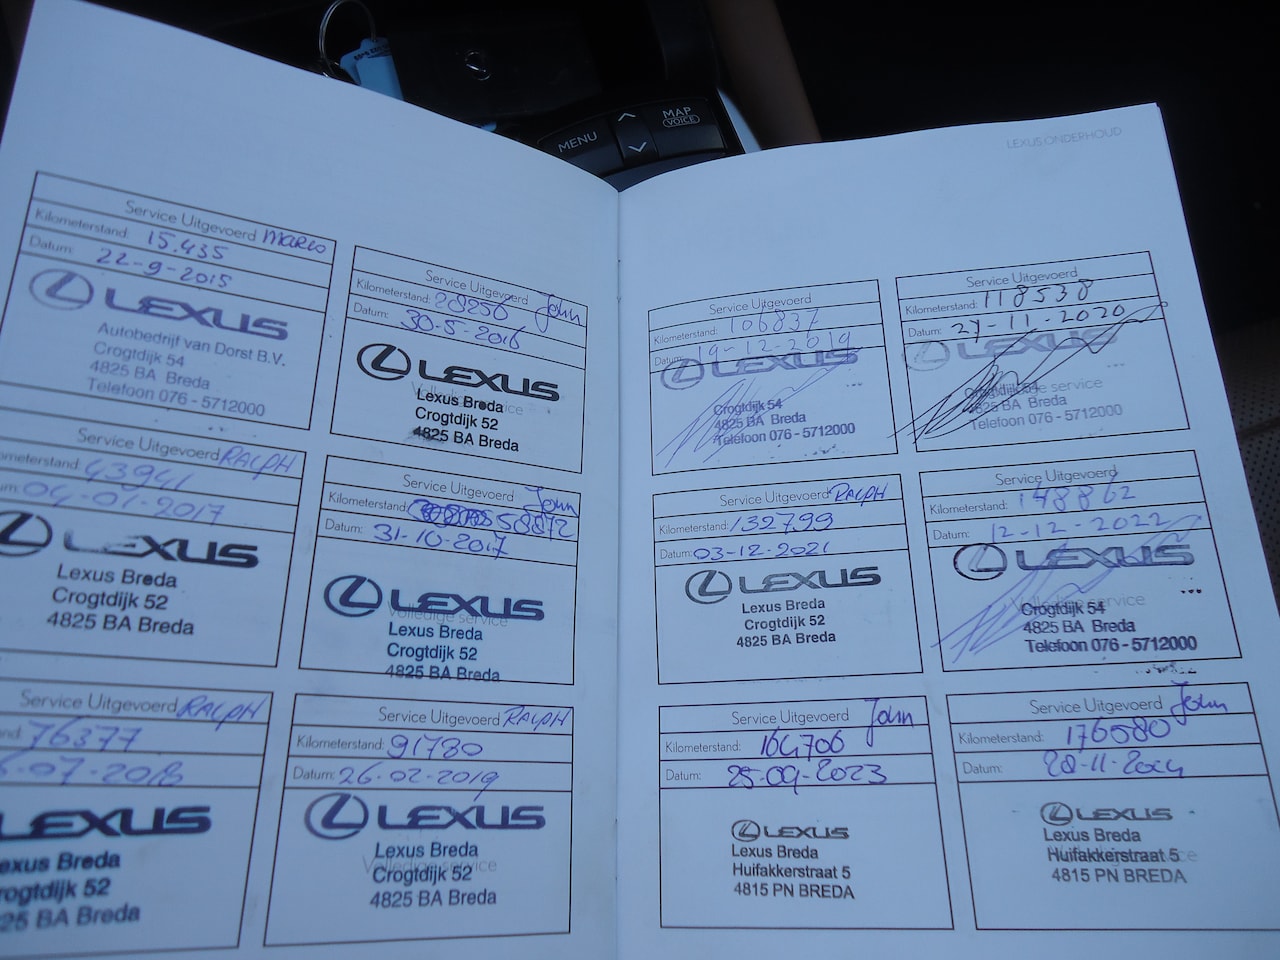 MENU
MAP
VOICE
LEXUS ONDERHOUD
Service Uitgevoerd Marco
Kilometerstand: 15.435
Datum: 22-9-2015
LEXUS
Autobedrijf van Dorst B.V.
Crogtdijk 54
4825 BA Breda
Telefoon 076 - 5712000
Service Uitgevoerd John
Kilometerstand: 28250
Datum: 30-5-2016
LEXUS
Volledige service
Lexus Breda
Crogtdijk 52
4825 BA Breda
Service Uitgevoerd RALPH
ometerstand: 43941
um: 04-01-2017
LEXUS
Lexus Breda
Crogtdijk 52
4825 BA Breda
Service Uitgevoerd John
Kilometerstand: 58872
Datum: 31-10-2017
LEXUS
Volledige service
Lexus Breda
Crogtdijk 52
4825 BA Breda
Service Uitgevoerd RALPH
nd: 76377
6-07-2018
LEXUS
exus Breda
rogtdijk 52
25 BA Breda
Service Uitgevoerd RALPH
Kilometerstand: 91780
Datum: 26-02-2019
LEXUS
Volledige service
Lexus Breda
Crogtdijk 52
4825 BA Breda
Service Uitgevoerd
Kilometerstand: 106837
Datum: 19-12-2019
LEXUS
Crogtdijk 54
4825 BA Breda
Telefoon 076 - 5712000
Service Uitgevoerd
Kilometerstand: 118538
Datum: 27-11-2020
LEXUS
Volledige service
Crogtdijk 54
4825 BA Breda
Telefoon 076 - 5712000
Service Uitgevoerd RALPH
Kilometerstand: 132799
Datum: 03-12-2021
LEXUS
Lexus Breda
Crogtdijk 52
4825 BA Breda
Service Uitgevoerd
Kilometerstand: 148862
Datum: 12-12-2022
LEXUS
Volledige service
Crogtdijk 54
4825 BA Breda
Telefoon 076 - 5712000
Service Uitgevoerd John
Kilometerstand: 164706
Datum: 25-09-2023
LEXUS
Lexus Breda
Huifakkerstraat 5
4815 PN BREDA
Service Uitgevoerd John
Kilometerstand: 176080
Datum: 28-11-2024
LEXUS
Lexus Breda
Huifakkerstraat 5
4815 PN BREDA